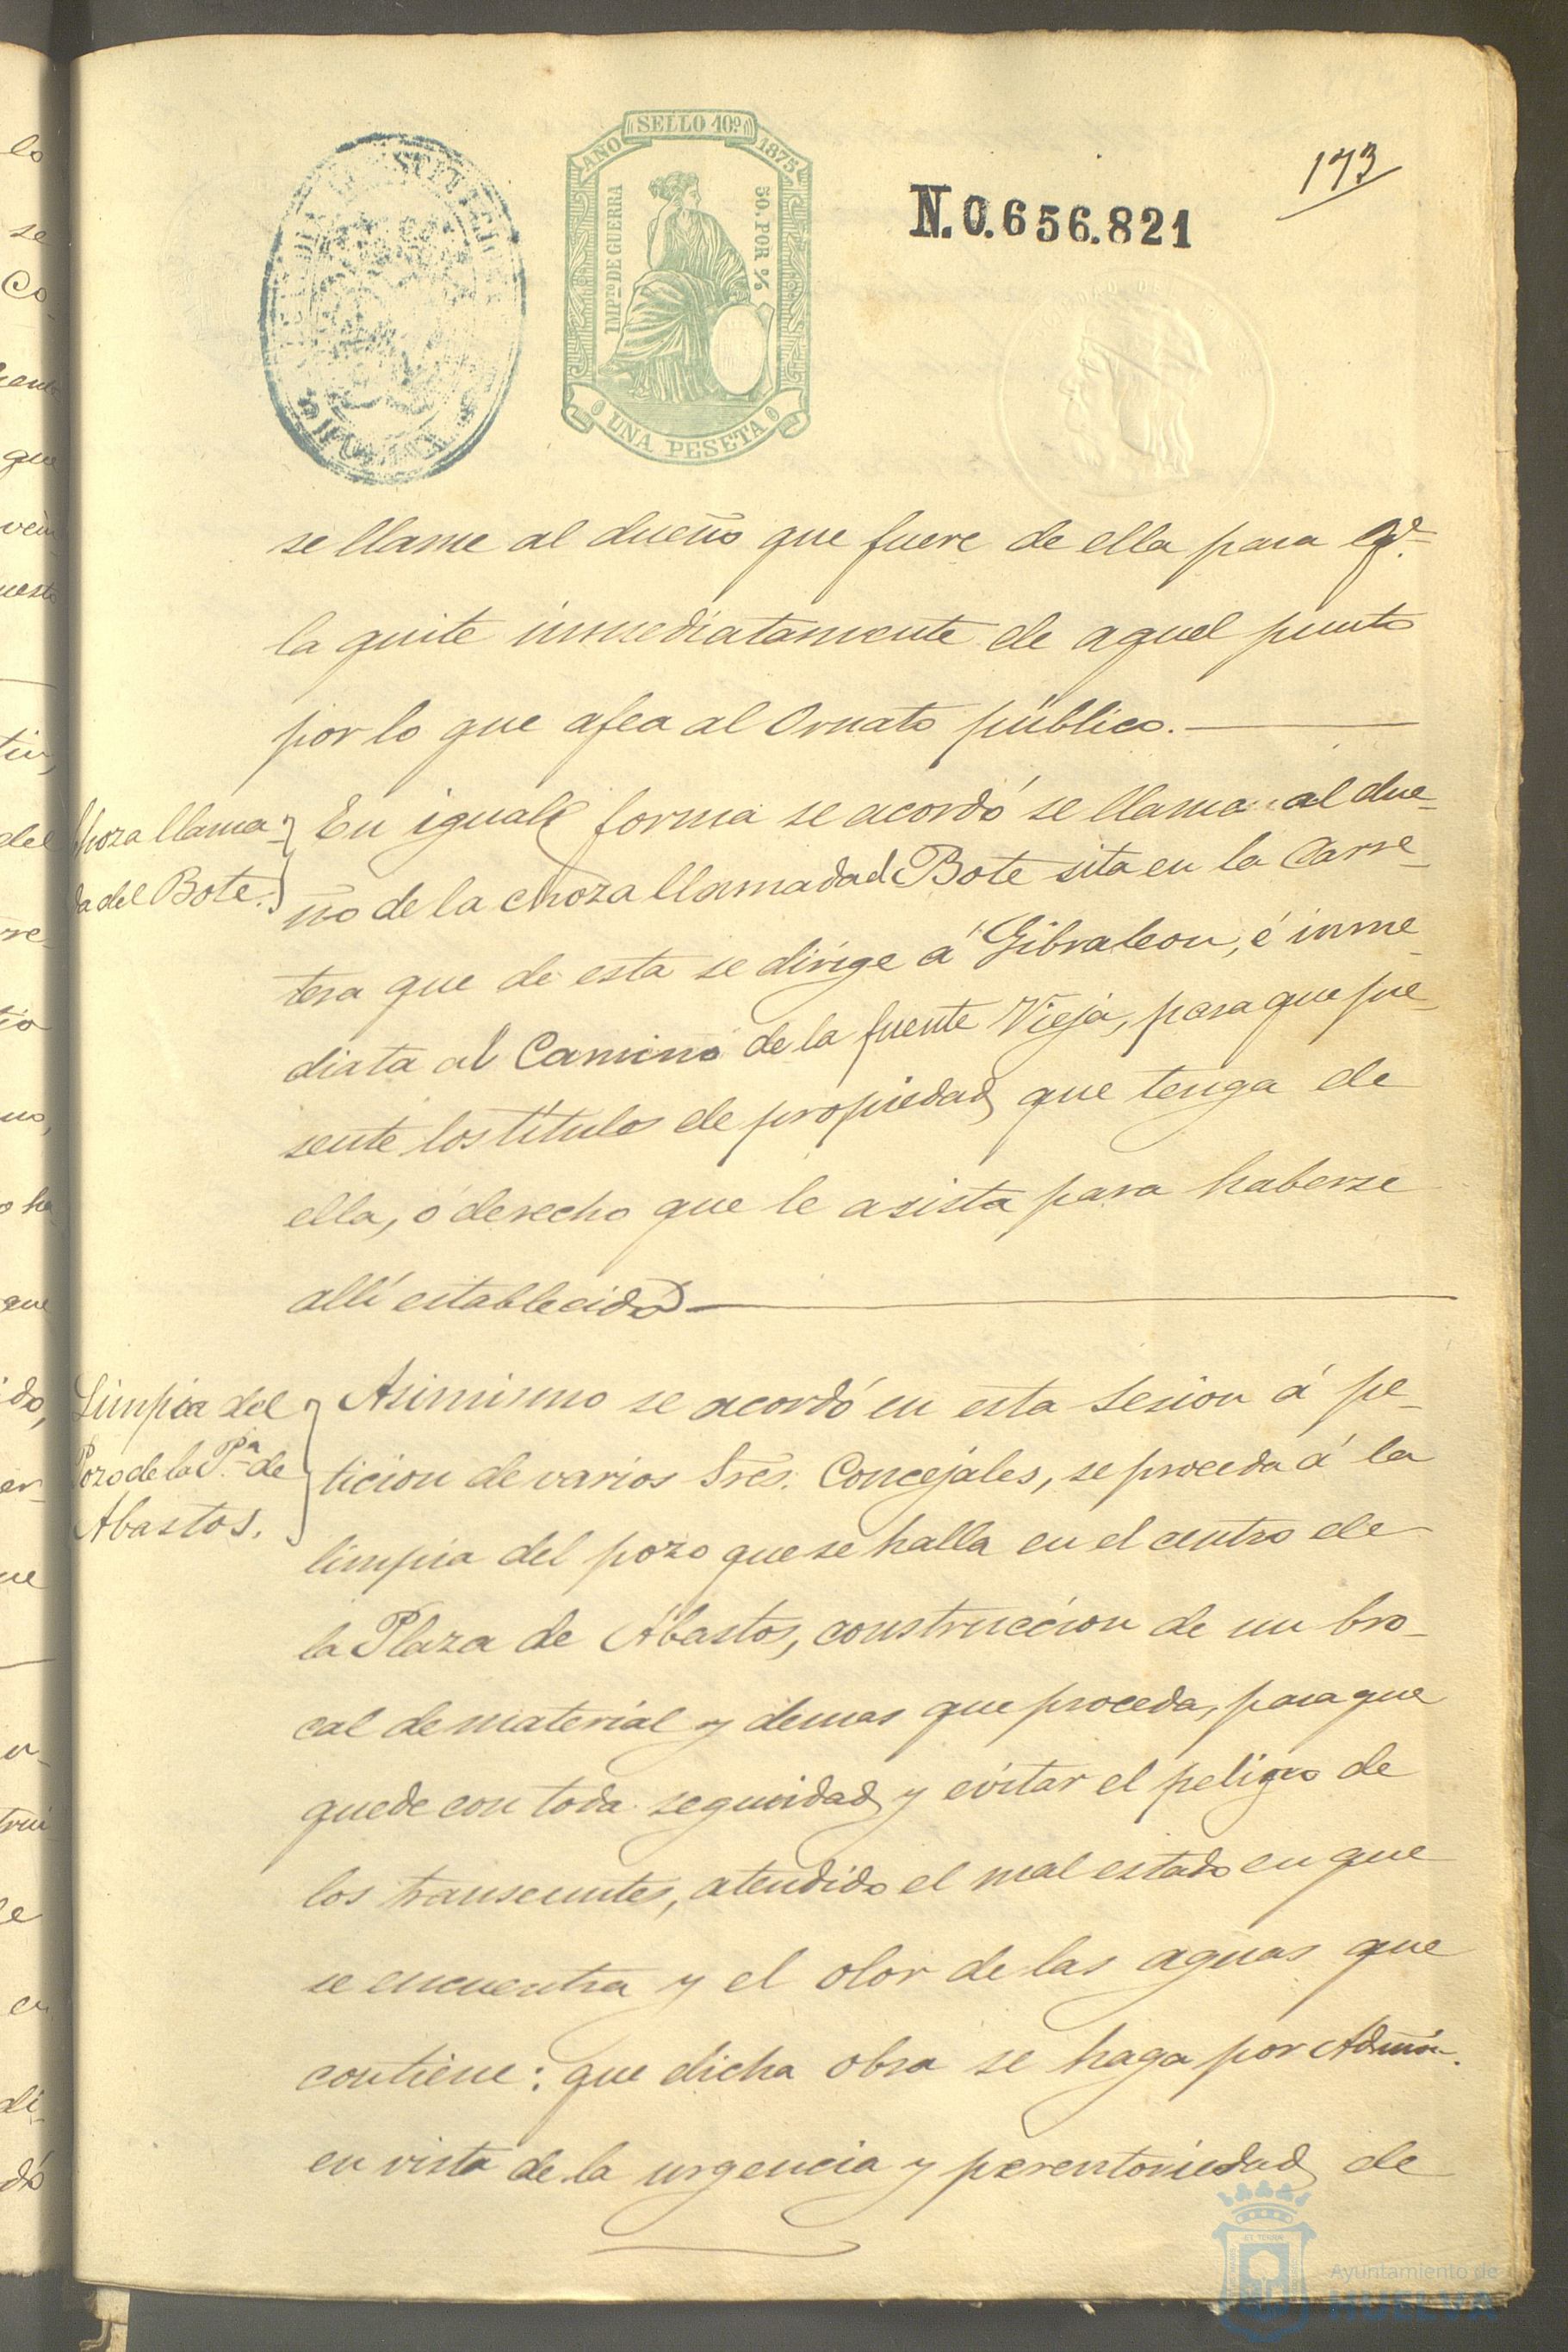 AÑO SELLO 10º 1875
IMPTO DE GUERRA
50. POR %
UNA PESETA
N. 0.656.821
173
se llame al dueño que fuere de ella para qe.
la quite inmediatamente de aquel punto
por lo que afea al Ornato público.
Choza llama-
da del Bote.
En igual forma se acordó se llama al due-
ño de la choza llamada del Bote sita en la Carre-
tera que de esta se dirige á Gibraleon, é inme-
diata al Camino de la fuente Vieja, para que pre-
sente los títulos de propiedad que tenga de
ella, ó derecho que le asista para haberse
allí establecido
Limpia del
Pozo de la Pª de
Abastos.
Asimismo se acordó en esta Sesion á pe-
ticion de varios Sres. Concejales, se proceda á la
limpia del pozo que se halla en el centro de
la Plaza de Abastos, construccion de un bro-
cal de material y demas que proceda, para que
quede con toda seguridad y evitar el peligro de
los transeuntes, atendido el mal estado en que
se encuentra y el olor de las aguas que
contiene: que dicha obra se haga por Admón.
en vista de la urgencia y perentoriedad de
Ayuntamiento de
HUELVA